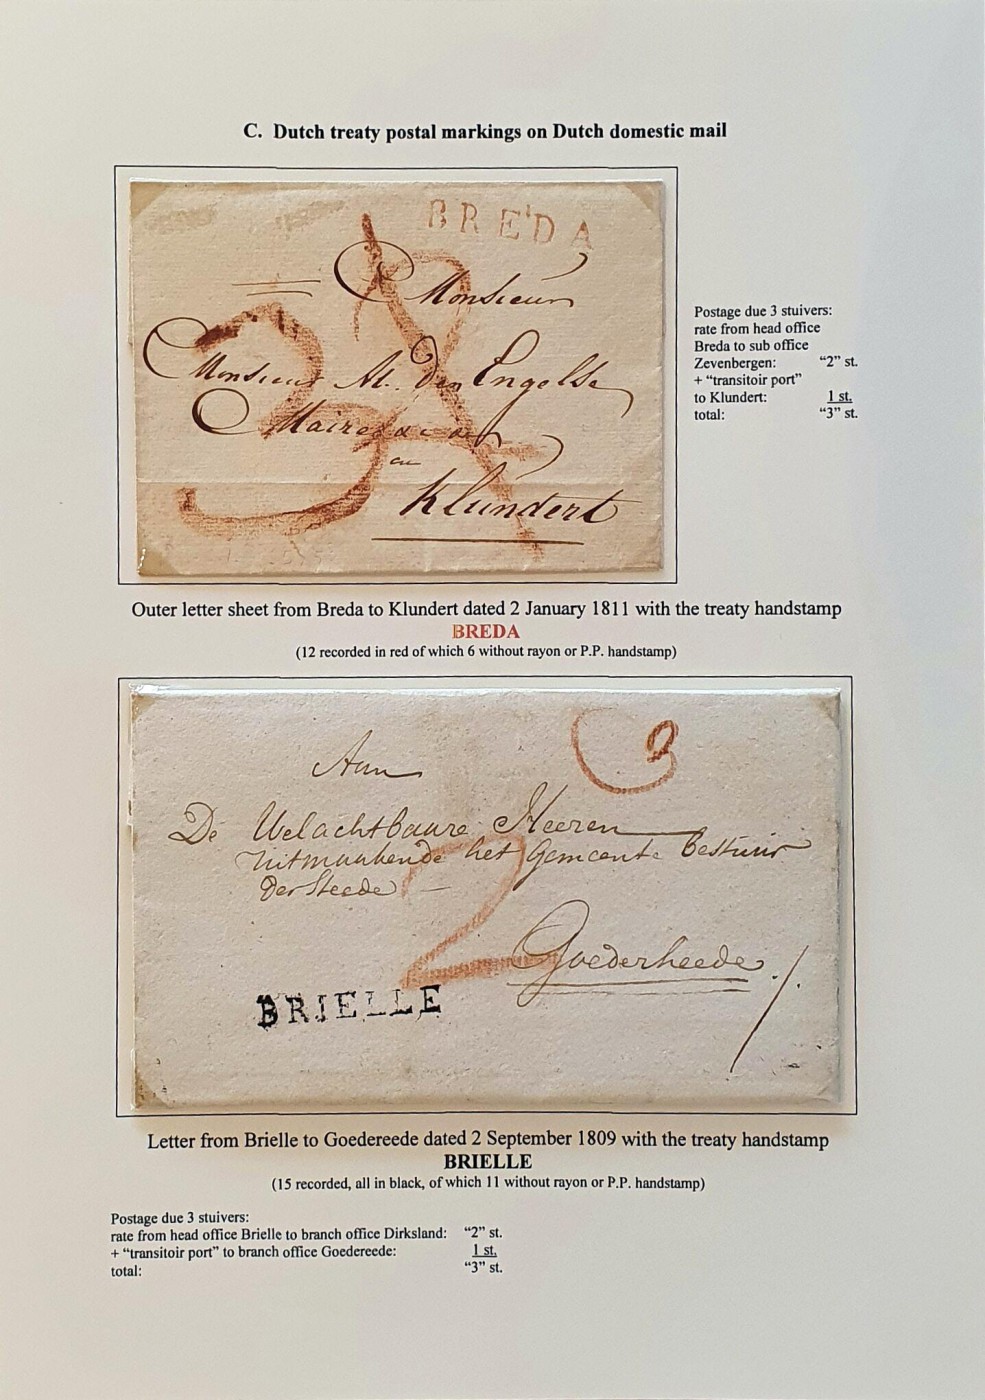 C. Dutch treaty postal markings on Dutch domestic mail
BREDA
Monsieur
Monsieur At. Den Engelse
Maire
au
Klundert
3
2
Postage due 3 stuivers:
rate from head office
Breda to sub office
Zevenbergen: “2” st.
+ “transitoir port”
to Klundert: 1 st.
total: “3” st.
Outer letter sheet from Breda to Klundert dated 2 January 1811 with the treaty handstamp
BREDA
(12 recorded in red of which 6 without rayon or P.P. handstamp)
3
Aan
De Welachtbaare Heeren
uitmaakende het Gemeente Bestuur
der Steede
2
Goederheede
BRIELLE
Letter from Brielle to Goedereede dated 2 September 1809 with the treaty handstamp
BRIELLE
(15 recorded, all in black, of which 11 without rayon or P.P. handstamp)
Postage due 3 stuivers:
rate from head office Brielle to branch office Dirksland: “2” st.
+ “transitoir port” to branch office Goedereede: 1 st.
total: “3” st.